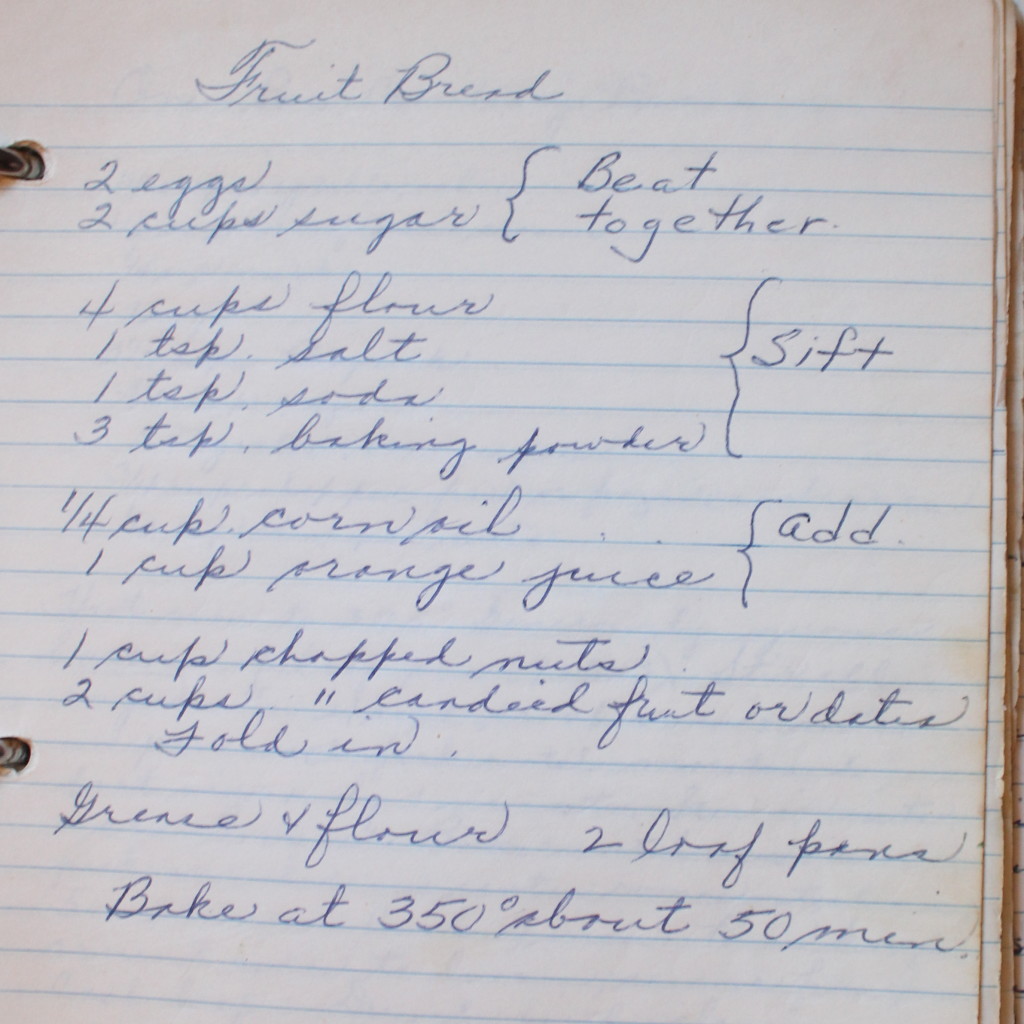 Fruit Bread
2 eggs { Beat
2 cups sugar together.
4 cups flour
1 tsp. salt { Sift
1 tsp. soda
3 tsp. baking powder
1/4 cup corn oil { add.
1 cup orange juice
1 cup chopped nuts
2 cups " candied fruit or dates
Fold in.
Grease & flour 2 loaf pans
Bake at 350° about 50 min.